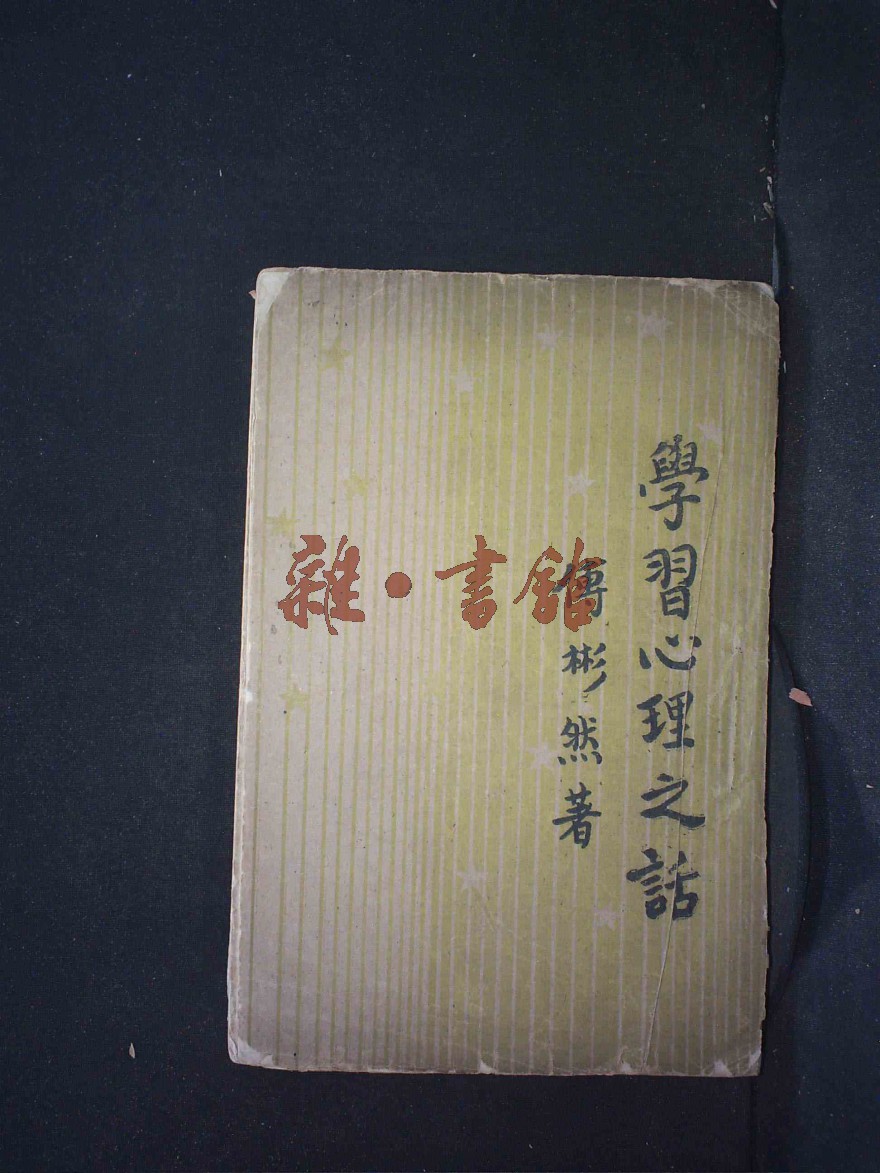 學習心理之話
傅彬然著
雜·書館